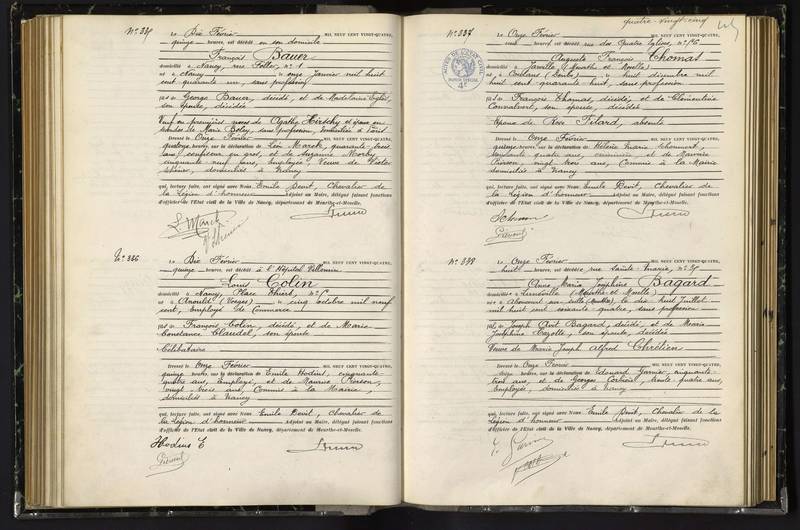 N° 335 Le Dix Février MIL NEUF CENT VINGT-QUATRE,
quinze heures, est décédé en son domicile
François Bauer
domicilié à Nancy, rue n° 1
né à Nancy le onze Janvier mil huit
cent quarante un, sans profession
fils de George Bauer, décédé, et de Madeleine
son épouse, décédée
Veuf en premières noces de Agathe Hirschy et époux en
secondes de Marie Boley, sans profession, domiciliée à Paris
Dressé le Onze Février MIL NEUF CENT VINGT-QUATRE,
quatorze heures, sur la déclaration de Léon March, quarante trois
ans, en gros, et de Suzanne
cinquante neuf ans, Employée, Veuve de Victor
domiciliés à Nancy
qui, lecture faite, ont signé avec Nous Emile Devit, Chevalier de
la Légion d'honneur Adjoint au Maire, délégué faisant fonctions
d'officier de l'Etat civil de la Ville de Nancy, département de Meurthe-et-Moselle.
L. March
N° 336 Le Dix Février MIL NEUF CENT VINGT-QUATRE,
quinze heures, est décédé à l'Hôpital Villemin
Louis Colin
domicilié à Nancy, Place Thiers, n°
né à Anould (Vosges) le cinq Octobre mil neuf
cent, Employé de Commerce
fils de François Colin, décédé, et de Marie
Constance Claudel, son épouse
Célibataire
Dressé le Onze Février MIL NEUF CENT VINGT-QUATRE,
quinze heures, sur la déclaration de Emile Hodius, cinquante
quatre ans, employé, et de Maurice Pierson,
vingt trois ans, Commis à la Mairie,
domiciliés à Nancy
qui, lecture faite, ont signé avec Nous Emile Devit, Chevalier de
la Légion d'honneur Adjoint au Maire, délégué faisant fonctions
d'officier de l'Etat civil de la Ville de Nancy, département de Meurthe-et-Moselle.
Hodius E
quatre-vingt-cinq
N° 337 Le Onze Février MIL NEUF CENT VINGT-QUATRE,
heures, est décédé rue des Quatre Eglises, n°
Auguste François Thomas
domicilié à Jarville (Meurthe et Moselle)
né à (Doubs) le huit décembre mil
huit cent quarante huit, sans profession
fils de François Thomas, décédé, et de Clémentine
son épouse, décédée
Epoux de Rose Pilard, absente
Dressé le Onze Février MIL NEUF CENT VINGT-QUATRE,
quinze heures, sur la déclaration de Hélène Marie
soixante quatre ans, et de Maurice
Pierson, vingt trois ans, Commis à la Mairie
domiciliés à Nancy
qui, lecture faite, ont signé avec Nous Emile Devit, Chevalier de
la Légion d'honneur Adjoint au Maire, délégué faisant fonctions
d'officier de l'Etat civil de la Ville de Nancy, département de Meurthe-et-Moselle.
N° 338 Le Onze Février MIL NEUF CENT VINGT-QUATRE,
huit heures, est décédée, rue Sainte Marie, n°
Anne Maria Joséphine Bagard
domiciliée à Lunéville (Meurthe et Moselle)
née à le dix huit Juillet
mil huit cent soixante quatre, sans profession
fille de Joseph Bagard, décédé, et de Maria
Joséphine son épouse, décédée
Veuve de Marie Joseph Alfred Chrétien
Dressé le Onze Février MIL NEUF CENT VINGT-QUATRE,
heures, sur la déclaration de Edouard Garnier, cinquante
trois ans, et de Georges trente quatre ans,
Employés, domiciliés à Nancy
qui, lecture faite, ont signé avec Nous Emile Devit, Chevalier de la
Légion d'honneur Adjoint au Maire, délégué faisant fonctions
d'officier de l'Etat civil de la Ville de Nancy, département de Meurthe-et-Moselle.